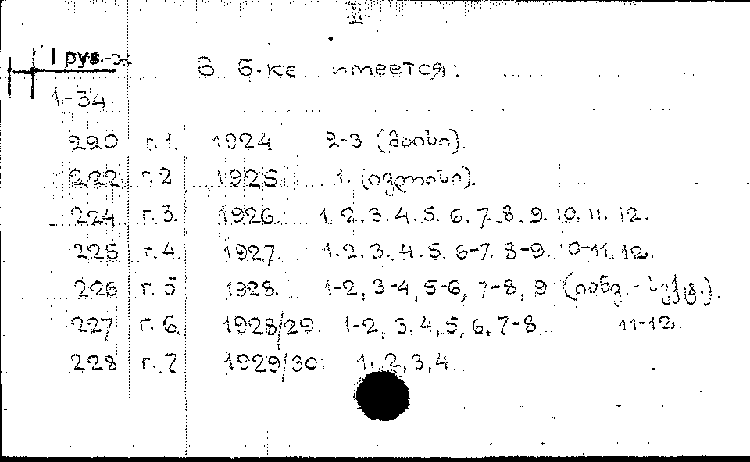 I рув.
В б-ке имеется:
1-34
220 г.1. 1924 2-3 (მაისი).
222 г.2 1925 1. (ივლისი).
224 г.3. 1926. 1.2.3.4.5.6.7.8.9.10.11.12.
225 г.4. 1927. 1.2.3.4.5.6-7.8-9.10-11.12.
226 г.5 1928. 1-2, 3-4, 5-6, 7-8, 9
227 г.6. 1928/29. 1-2, 3, 4, 5, 6, 7-8. 11-12.
228 г.7 1929/30. 1, 2, 3, 4